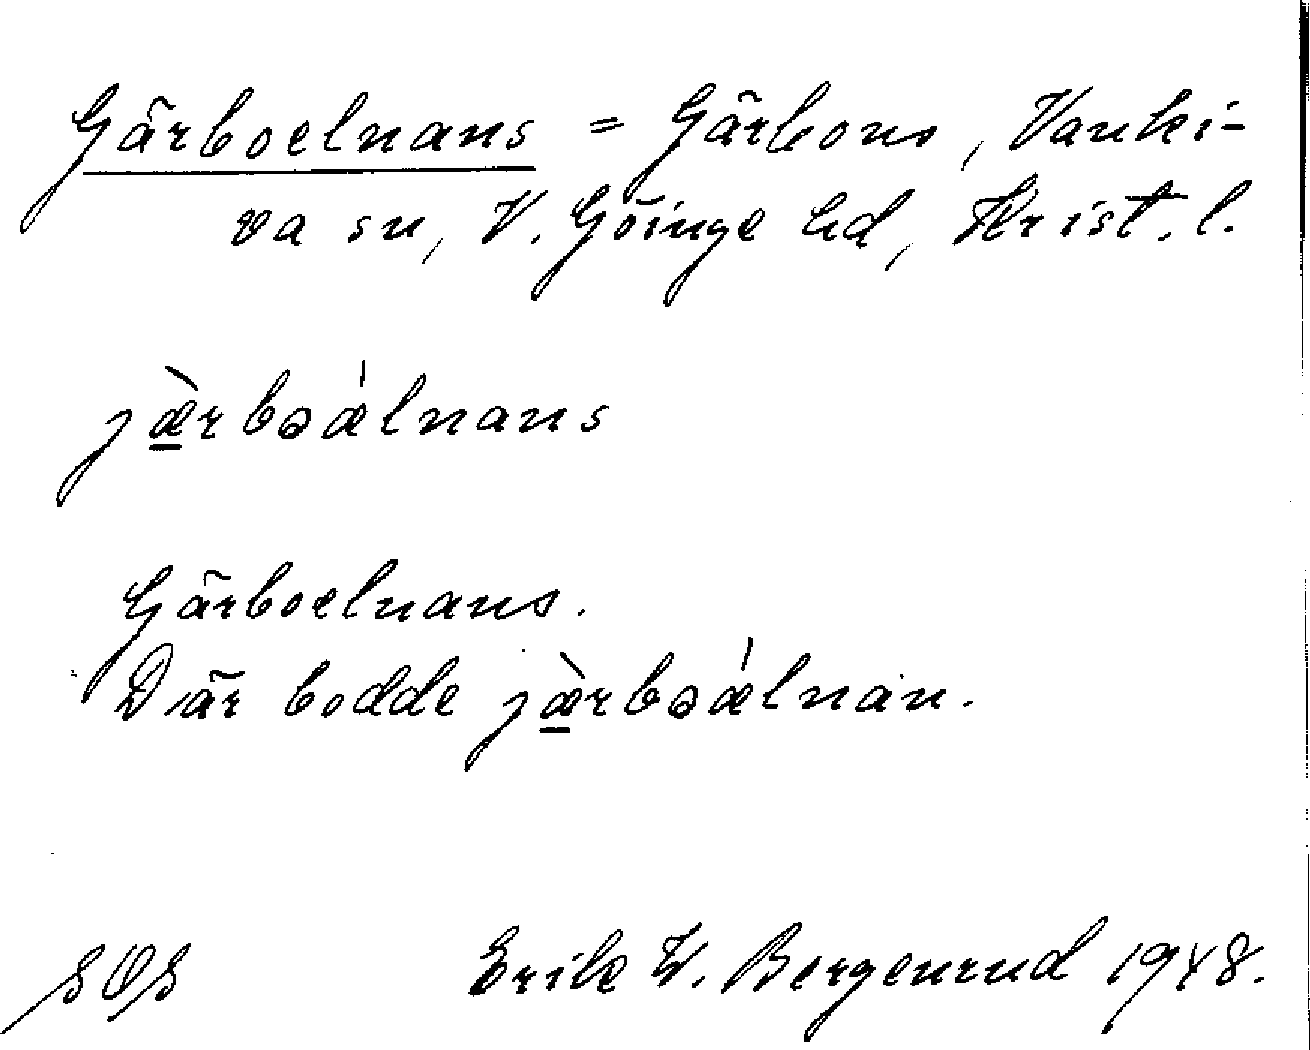 Gärboelnans = Gärbons, Vanki-
va sn, V. Göinge hd, Krist. l.
jæ̀rbɷǽlnans
Gärboelnans.
Där bodde jæ̀rbɷǽlnan.
SOS Erik W. Bergenrud 1948.